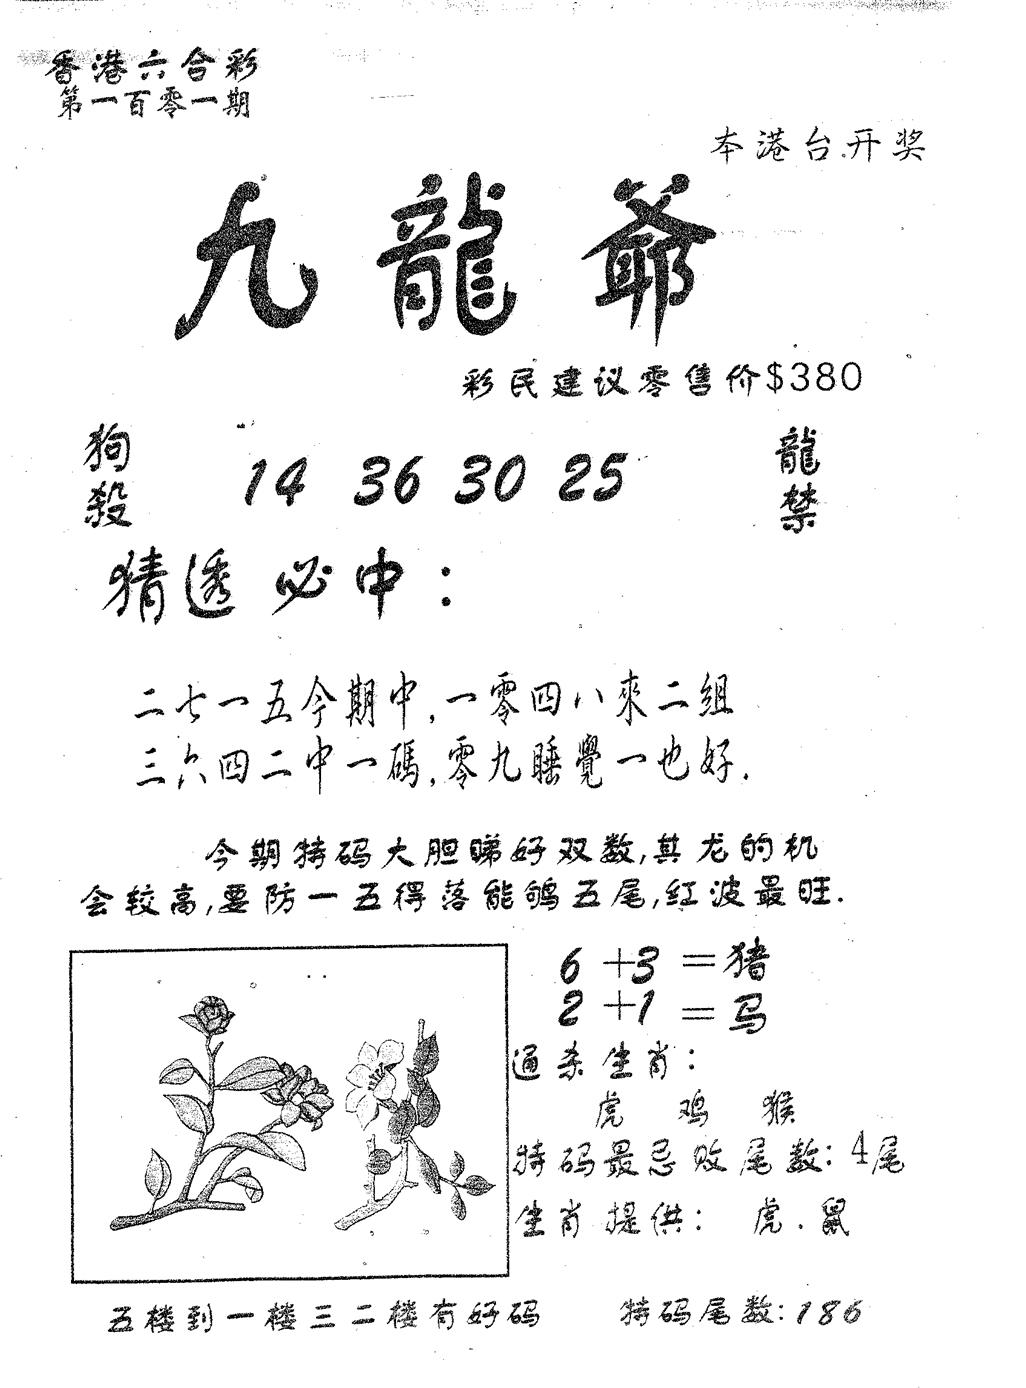 香港六合彩
第一百零一期
本港台.开奖
九龍爺
彩民建议零售价$380
狗殺 14 36 30 25 龍禁
猜透必中：
二七一五今期中,一零四八來二组
三六四二中一碼,零九睡覺一也好.
今期特码大胆睇好双数,其龙的机
会较高,要防一五得落能鸲五尾,红波最旺.
6+3=猪
2+1=马
通杀生肖：
虎 鸡 猴
特码最忌败尾数：4尾
生肖提供： 虎.鼠
五楼到一楼三二楼有好码 特码尾数：186